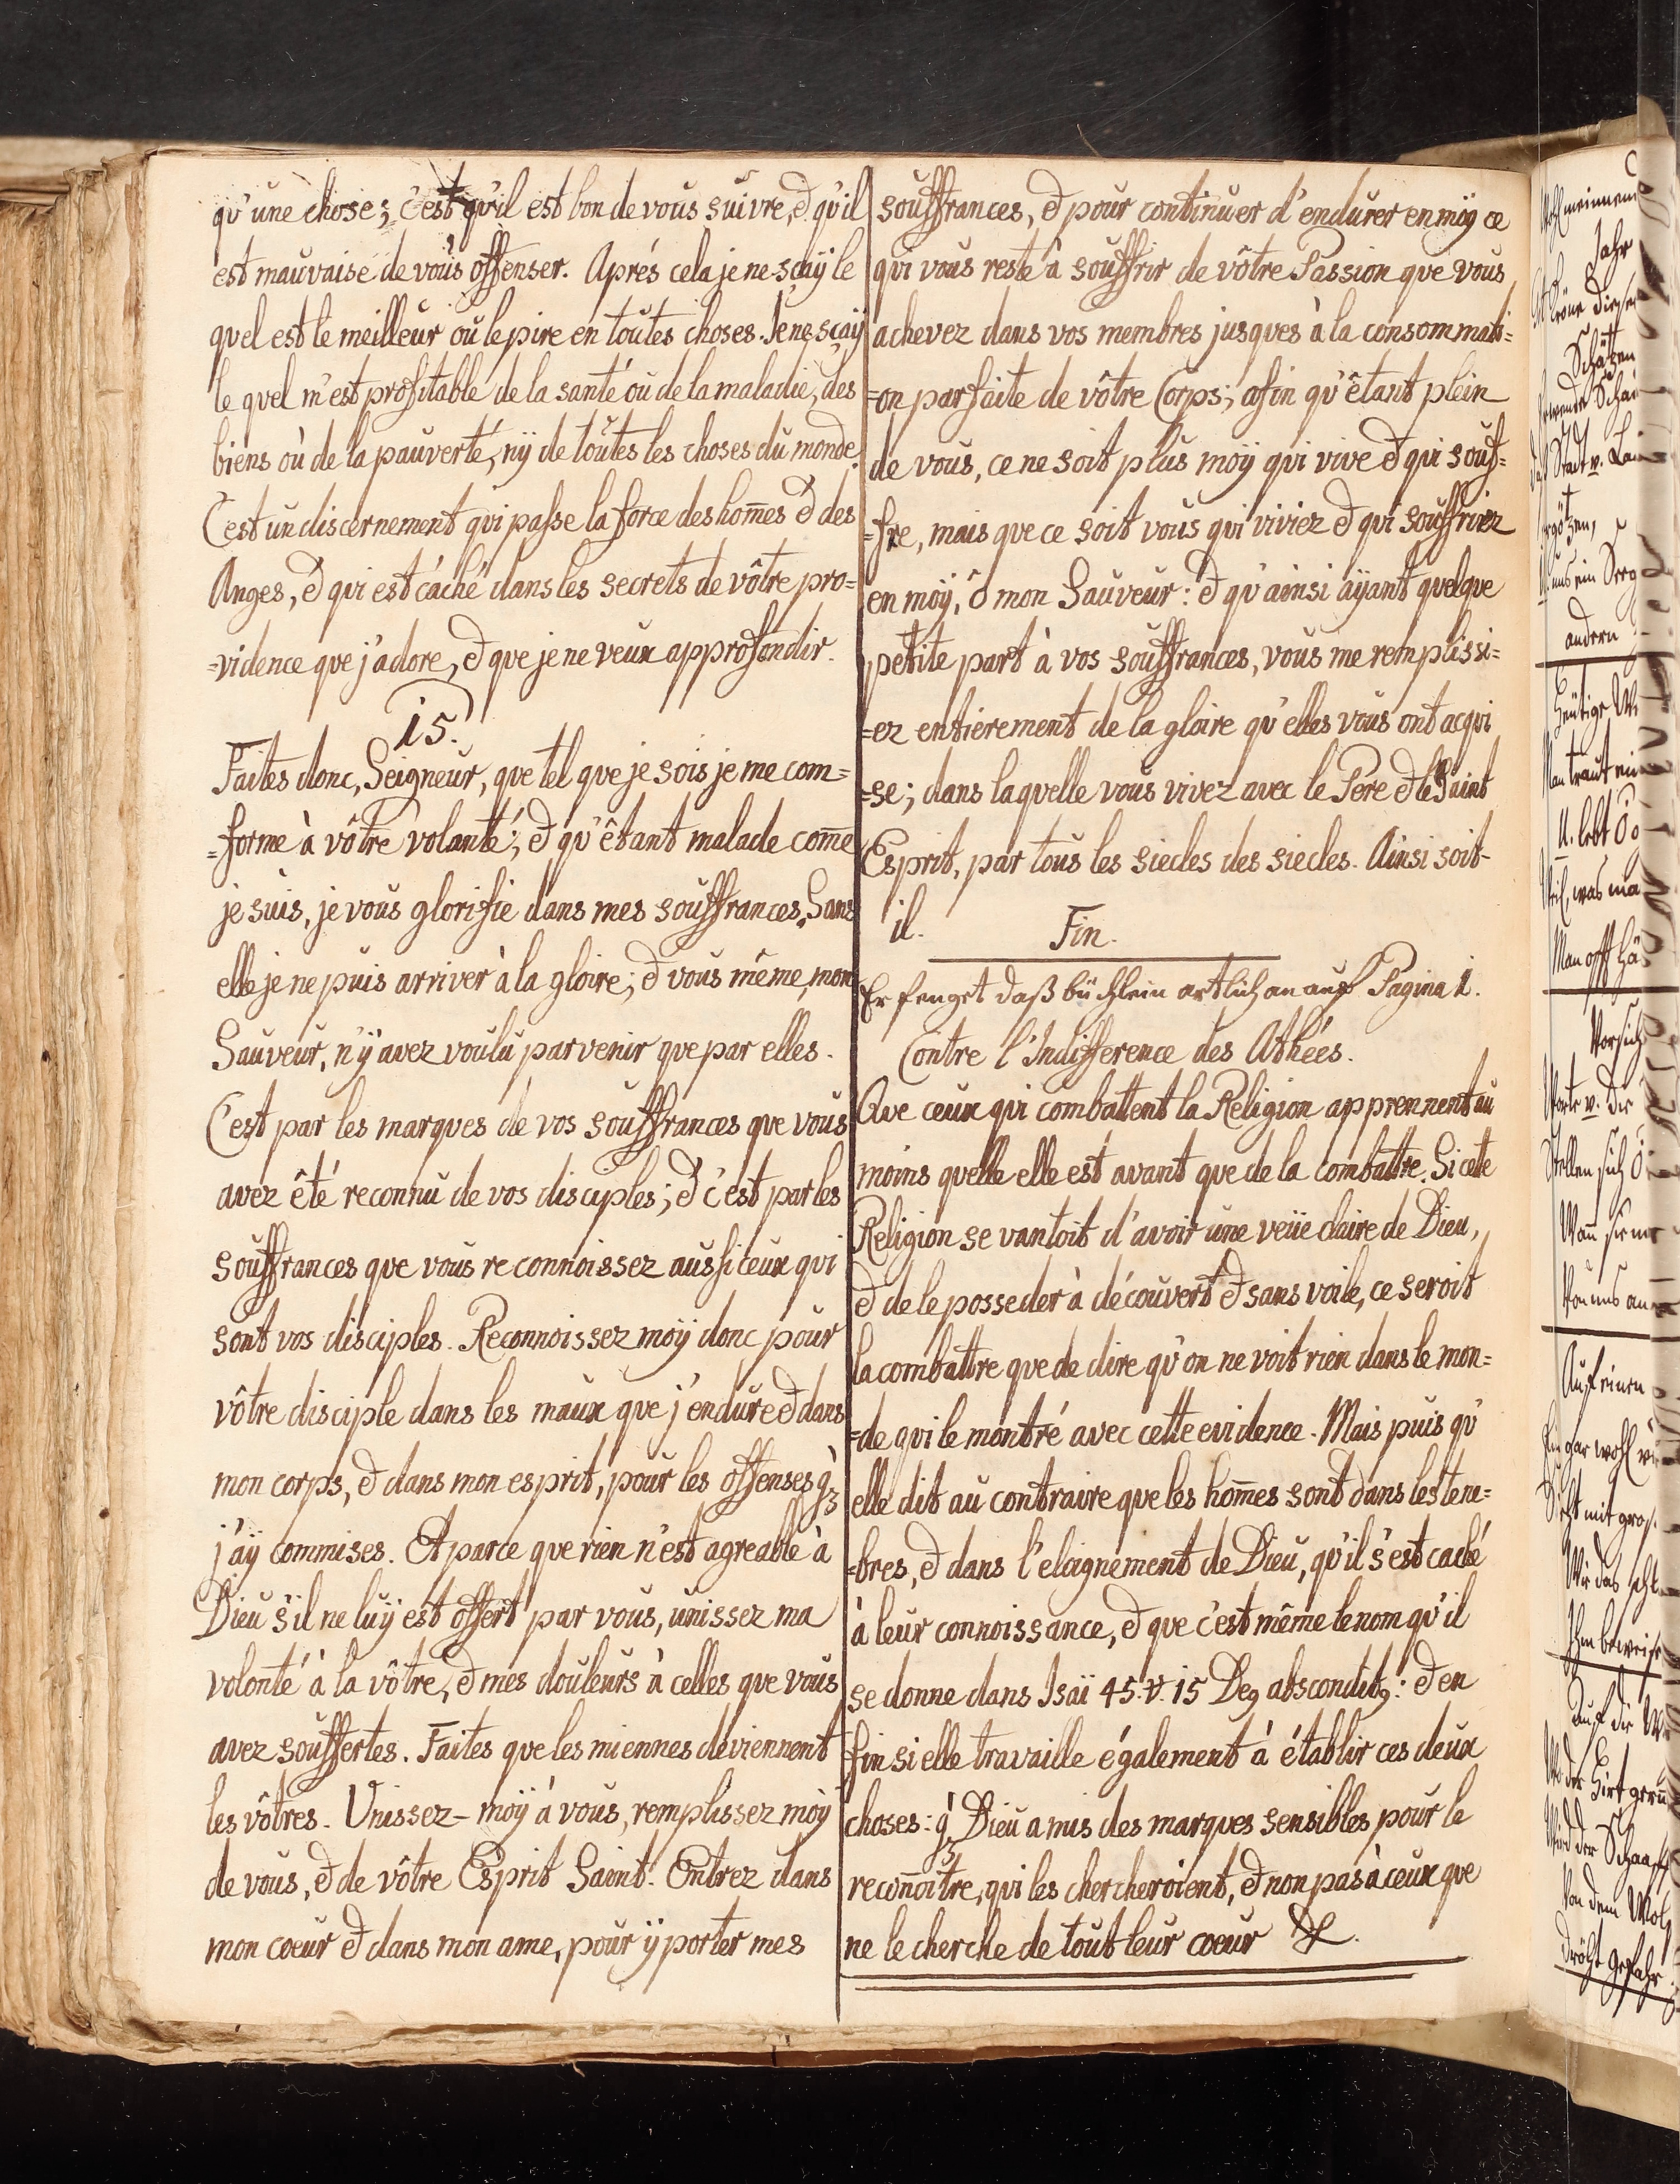 qu'une chose; c'est qu'il est bon de vous suivre, & qu'il
est mauvaise de vous offenser. Aprés cela je ne sçaÿ le
quel est le meilleur ou le pire en toutes choses. Je ne sçaÿ
le quel m'est profitable de la santé ou de la maladie, des
biens où de la pauverté, nÿ de toutes les choses du monde.
C'est un discernement qui passe la force des hom̄es & des
Anges, & qui est caché dans les secrets de vôtre pro=
=vidence que j'adore, & que je ne veux approfondir.
15.
Faites donc, Seigneur, que tel que je sois je me com=
=forme à vôtre volanté; & qu'êtant malade com̄e
je suis, je vous glorifie dans mes souffrances. Sans
elle je ne puis arriver à la gloire; & vous même, mon
Sauveur, n'ÿ avez voulu parvenir que par elles.
C'est par les marques de vos souffrances que vous
avez êté reconnu de vos disciples; & c'est par les
souffrances que vous reconnoissez aussi ceux qui
sont vos disciples. Reconnoissez moÿ donc pour
vôtre disciple dans les maux que j'endure & dans
mon corps, & dans mon esprit, pour les offenses q̃
j'aÿ commises. Et parce que rien n'est agreable à
Dieu s'il ne luÿ est offert par vous, unissez ma
volonté à la vôtre, & mes douleurs à celles que vous
avez souffertes. Faites que les miennes deviennent
les vôtres. Unissez-moÿ à vous, remplissez moÿ
de vous, & de vôtre Esprit Saint. Entrez dans
mon coeur & dans mon ame, pour ÿ porter mes
souffrances, & pour continuer d'endurer en moÿ ce
qui vous reste à souffrir de vôtre Passion que vous
achevez dans vos membres jusques à la consommati=
=on parfaite de vôtre Corps; afin qu'êtant plein
de vous, ce ne soit plus moÿ qui vive & qui souf=
=fre, mais que ce soit vous qui viviez & qui souffriez
en moÿ, ô mon Sauveur: & qu'ainsi aÿant quelque
petite part à vos souffrances, vous me remplissi=
=ez entierement de la gloire qu'elles vous ont acqui
=se; dans laquelle vous vivez avec le Pere & le Saint
Esprit, par tous les siecles des siecles. Ainsi soit-
il. Fin.
Er fenget daß büchlein artlich an auf Pagina 1.
Contre l'Indifference des Athées.
Que ceux qui combattent la Religion apprennent au
moins quelle elle est avant que de la combattre. Si cete
Religion se vantoit d'avoir une veüe claire de Dieu,
& de le posseder à découvert & sans voile, ce seroit
la combattre que de dire qu'on ne voit rien dans le mon=
=de qui le montré avec cette evidence. Mais puis qu'
elle dit au contraire que les hom̄es sont dans les tene=
=bres, & dans l'eloignement de Dieu, qu'il s'est caché
à leur connoissance, & que c'est même le nom qu'il
se donne dans Isaï 45. v. 15 De9 abscondit9: & en
fin si elle travaille également à établir ces deux
choses: q̃ Dieu a mis des marques sensibles pour le
recon̄oitre, qui les chercheroient, & non pas à ceux que
ne le cherche de tout leur coeur &.
Jahr
Schätzen
andern
Heütige
Man traut
Man offt
Auf einen
gar wohl
mit
Wie das
Ihm beweise
auf die
der Hirt
der Schaaff
Von dem Wolf
dröht gefahr